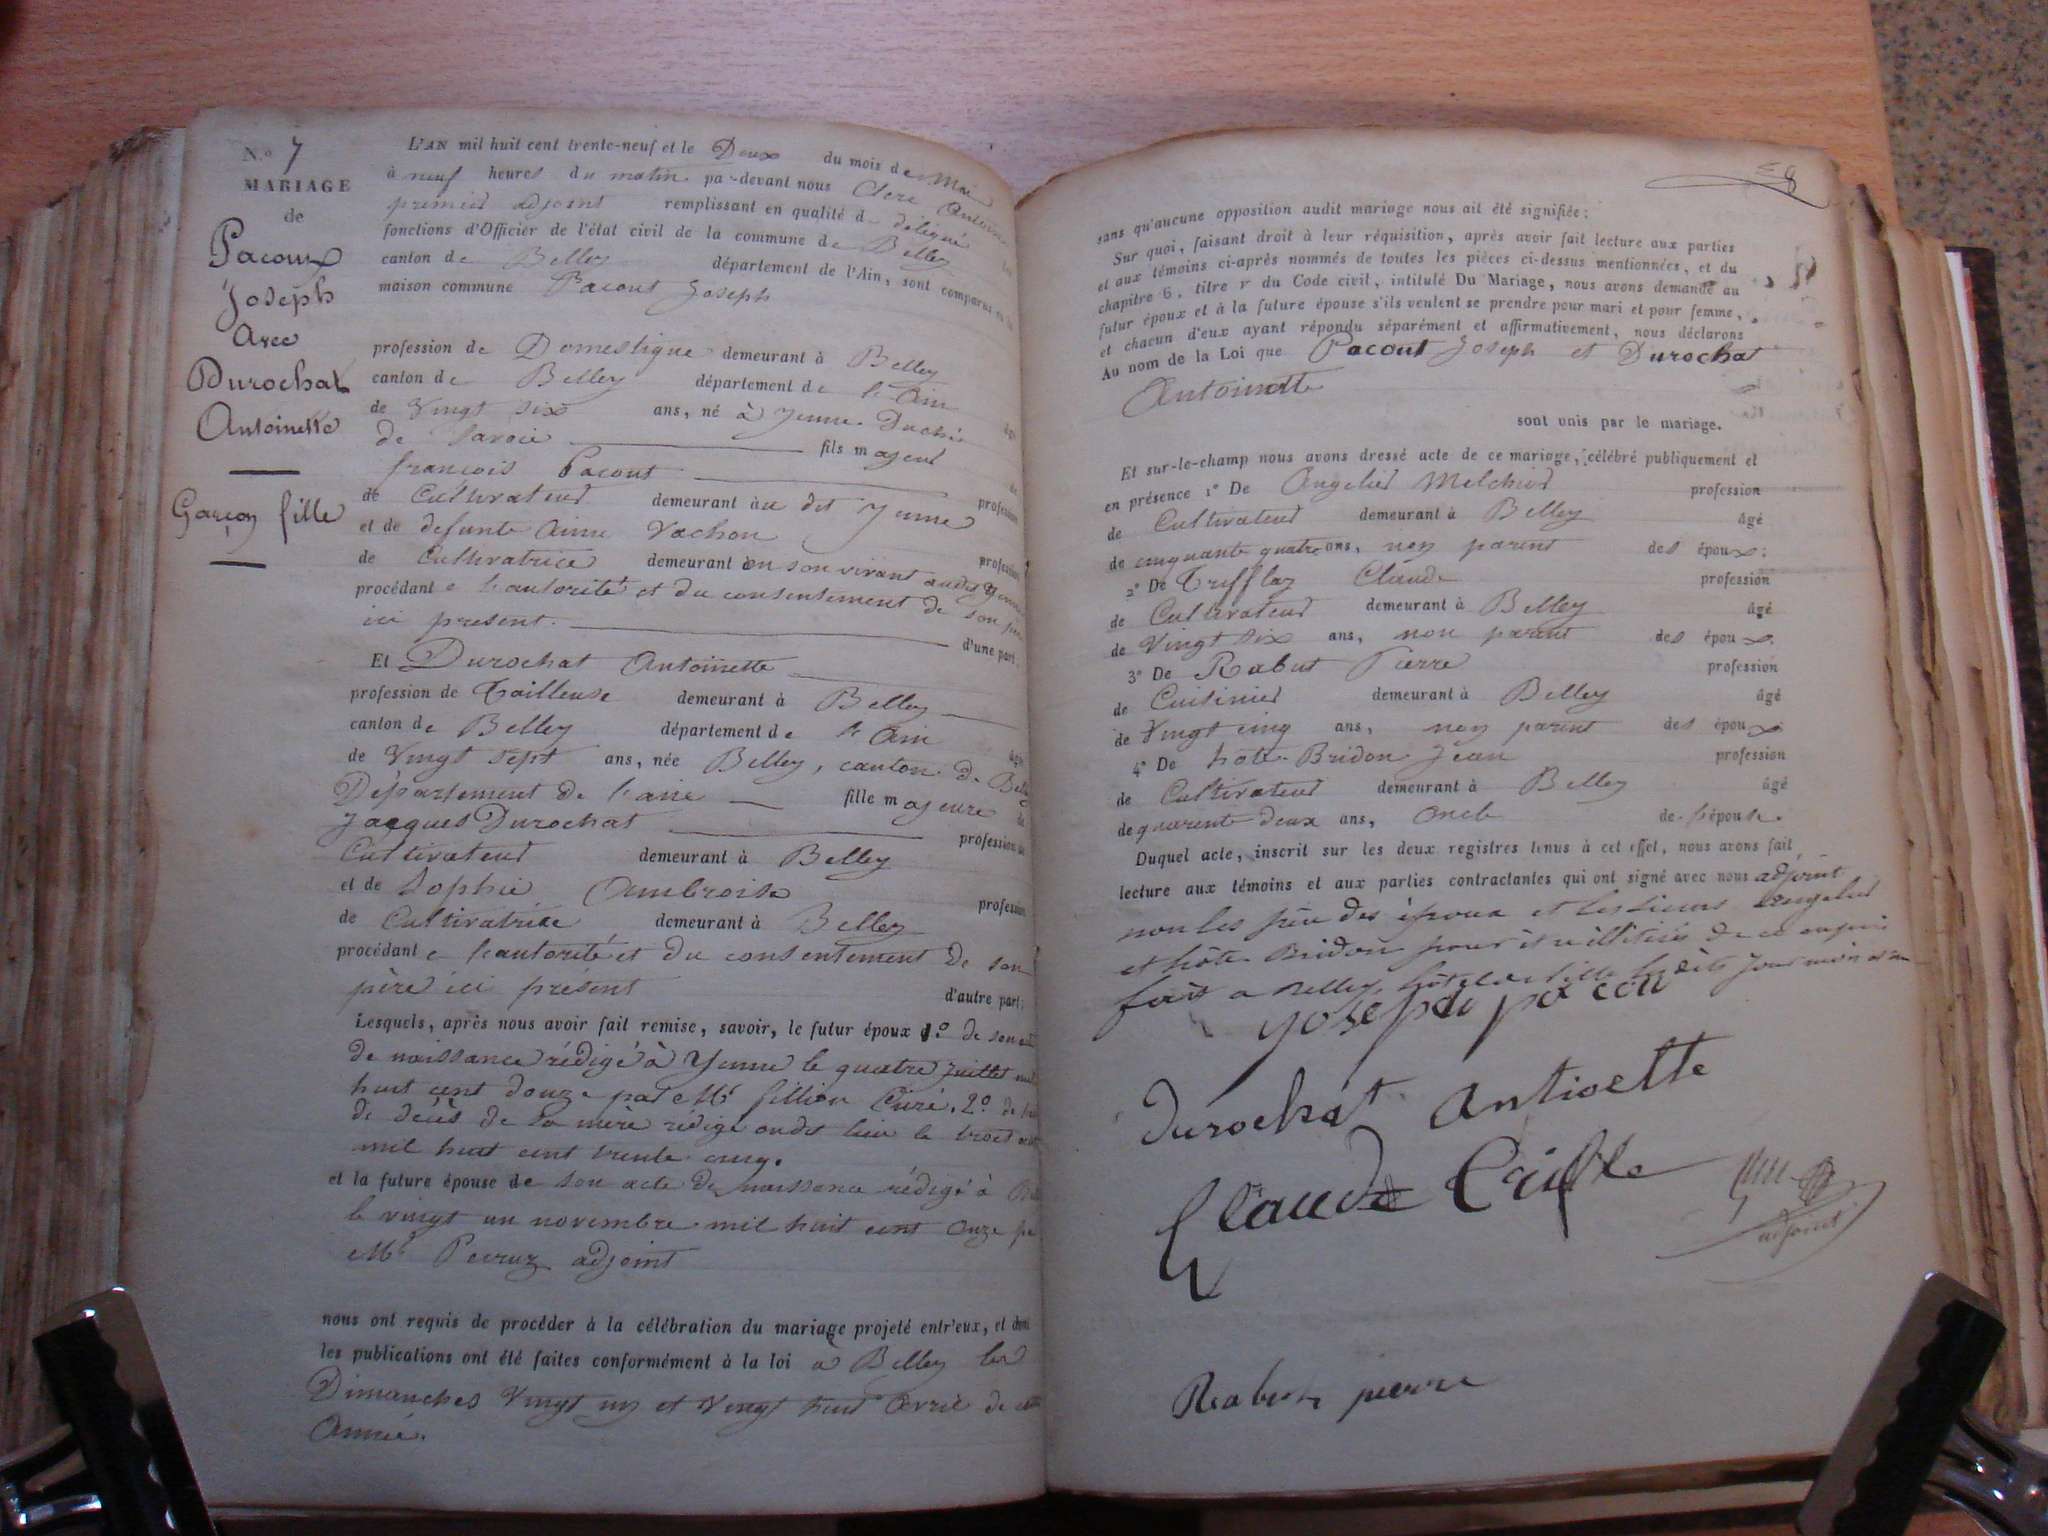 N.o 7
MARIAGE
de
Pacoux
Joseph
Avec
Durochat
Antoinette
Garçon fille
L'AN mil huit cent trente-neuf et le Deux du mois de Mai
à neuf heures du matin pa-devant nous Clerc Antoine
premier adjoint remplissant en qualité de délégué
fonctions d'Officier de l'état civil de la commune de Belley
canton de Belley département de l'Ain, sont comparus en la
maison commune Pacout Joseph
profession de Domestique demeurant à Belley
canton de Belley département de l'Ain
de Vingt six ans, né à yenne Duché
de Savoie fils majeur
françois Pacout
de Cultivateur demeurant au dit yenne profession
et de defunte Aime Vachon
de Cultivatrice demeurant en son vivant audit yenne profession
procédant e l'autorité et du consentement de son père
ici present. d'une part.
Et Durochat Antoinette
profession de Tailleuse demeurant à Belley
canton de Belley département de l'Ain
de Vingt sept ans, née Belley, canton de
Département de l'ain fille majeure de
Jacques Durochat profession de
Cultivateur demeurant à Belley
et de Sophie Ambroise profession
de Cultivatrice demeurant à Belley
procédant e l'autorité et du consentement de son
père ici présent d'autre part;
Lesquels, après nous avoir fait remise, savoir, le futur époux 1.o de son
de naissance rédigé à Yenne le quatre juillet mil
huit cent douze par Mr fillion Curé. 2.o de
de décès de la mère rédigé audit lieu le trois
mil huit cent trente cinq.
et la future épouse de son acte de naissance rédigé à
le vingt un novembre mil huit cent onze
Mr adjoint
nous ont requis de procéder à la célébration du mariage projeté entr'eux, et dont
les publications ont été faites conformément à la loi à Belley les
Dimanches Vingt un et Vingt huit Avril de
Année.
8
sans qu'aucune opposition audit mariage nous ait été signifiée;
Sur quoi, faisant droit à leur réquisition, après avoir fait lecture aux parties
et aux témoins ci-après nommés de toutes les pièces ci-dessus mentionnées, et du
chapitre 6, titre v du Code civil, intitulé Du Mariage, nous avons demandé au
futur époux et à la future épouse s'ils veulent se prendre pour mari et pour femme,
et chacun d'eux ayant répondu séparément et affirmativement, nous déclarons
Au nom de la Loi que Pacout Joseph et Durochat
Antoinette
sont unis par le mariage.
Et sur-le-champ nous avons dressé acte de ce mariage, célébré publiquement et
en présence 1o De Angelier Melchior profession
de Cultivateur demeurant à Belley âgé
de cinquante quatre ans, non parent des époux;
2o De Trifflaz Claude profession
de Cultivateur demeurant à Belley âgé
de Vingt six ans, non parent des époux.
3o De Rabut Pierre profession
de Cuisinier demeurant à Belley âgé
de Vingt cinq ans, non parent des époux
4o De hôte-Bridon Jean profession
de Cultivateur demeurant à Belley âgé
de quarente deux ans, oncle de l'épouse.
Duquel acte, inscrit sur les deux registres tenus à cet effet, nous avons fait
lecture aux témoins et aux parties contractantes qui ont signé avec nous adjoint
non les père des époux et les sieurs Angelier
et hôte Bridon pour être illitérés de ce enquis
fait a Belley, hôtel de ville les dits jour mois et an
yoseph pacou
Durochat Antioette
Claude
adjoint
Rabut pierre